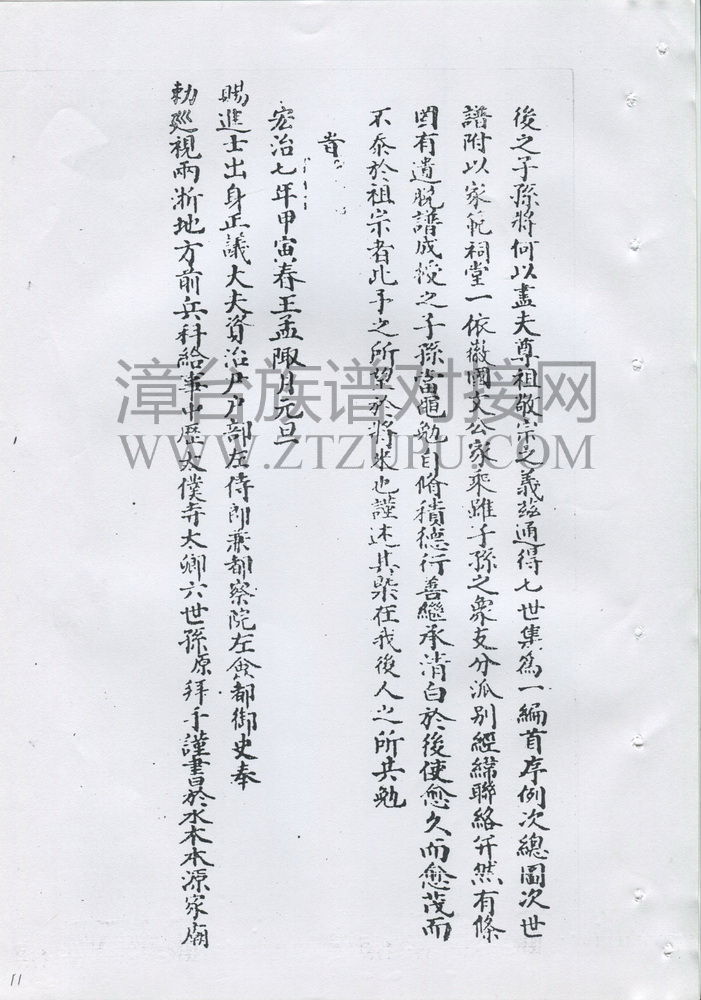 後之子孫將何以盡夫尊祖敬宗之義茲通得七世集為一編首序例次總圖次世
譜附以家範祠堂一依徽國文公家乘雖子孫之衆支分派別經緯聯絡井然有條
罔有遺脫譜成授之子孫當黽勉自脩積德行善繼承清白於後使愈久而愈茂而
不忝於祖宗者此予之所望於將來也謹述其槩在我後人之所共勉
旹
宏治七年甲寅春王孟陬月元旦
賜進士出身正議大夫資治尹戶部左侍郎兼都察院左僉都御史奉
勅廵視兩浙地方前兵科給事中歷太僕寺太卿六世孫原拜手謹書於水木本源家廟
漳台族谱对接网
WWW.ZTZUPU.COM
11